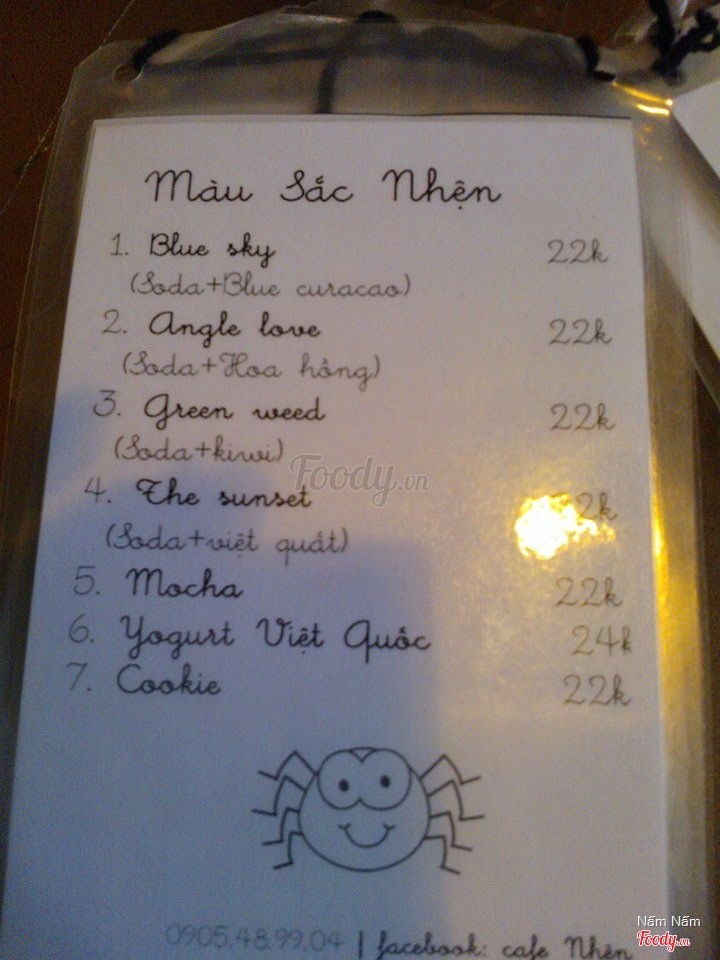 Màu Sắc Nhện
1. Blue sky 22k
(Soda+Blue curacao)
2. Angle love 22k
(Soda+Hoa hồng)
3. Green weed 22k
(Soda+kiwi)
Foody.vn
4. The sunset 22k
(Soda+việt quất)
5. Mocha 22k
6. Yogurt Việt Quốc 24k
7. Cookie 22k
0905.48.99.04 | facebook: cafe Nhện
Nấm Nấm
Foody.vn